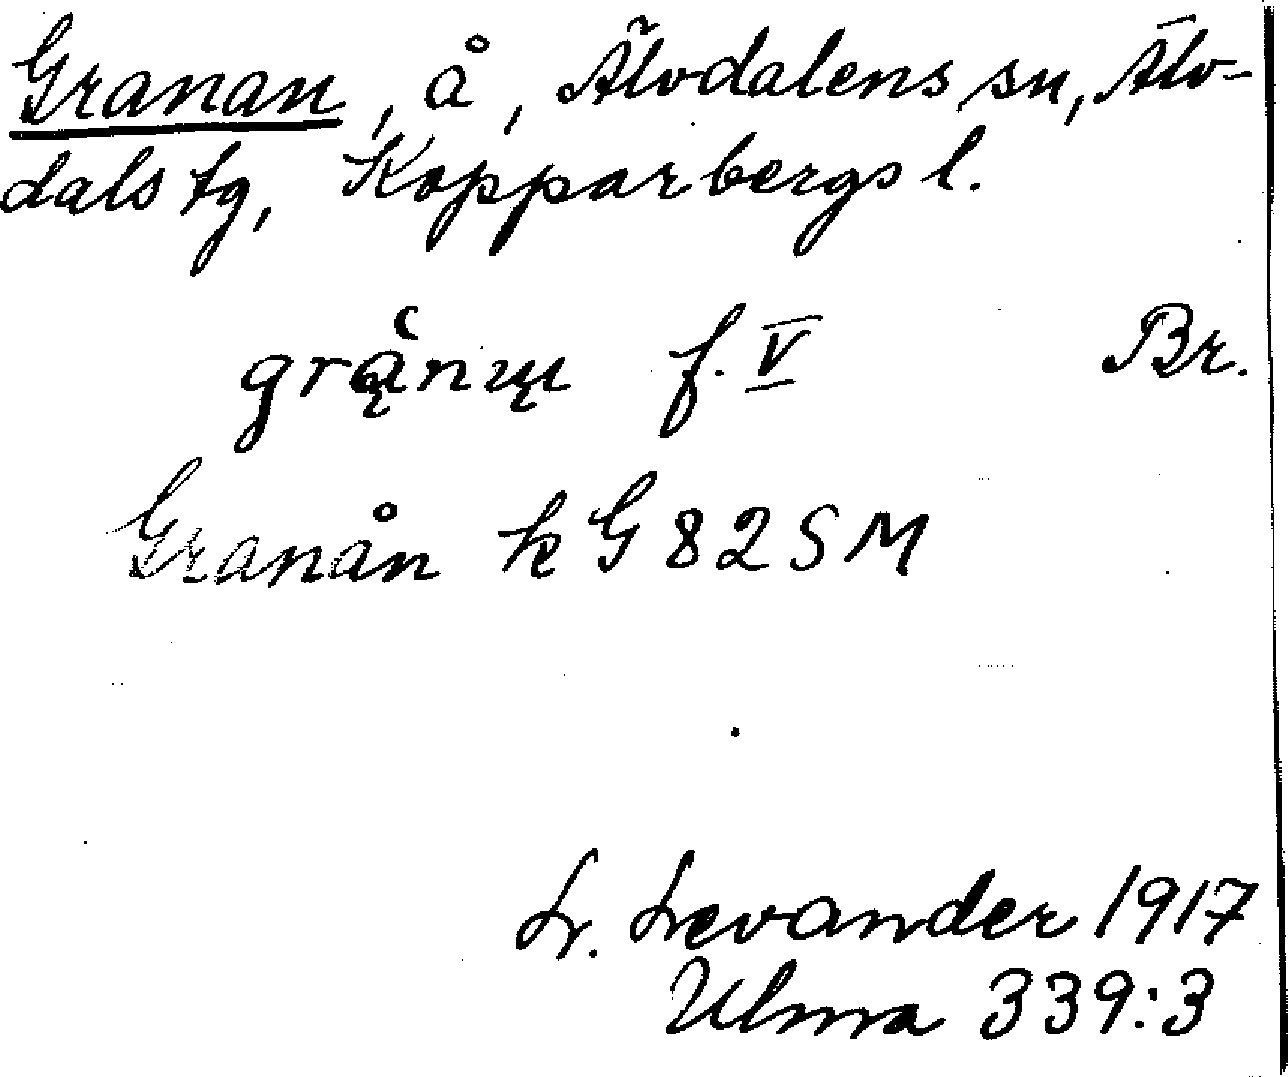 Granan, å, Älvdalens sn, Älv-
dals tg, Kopparbergs l.
grą̊nųu f. V Br.
Granån kG 82 SM
L. Levander 1917
Ulma 339:3